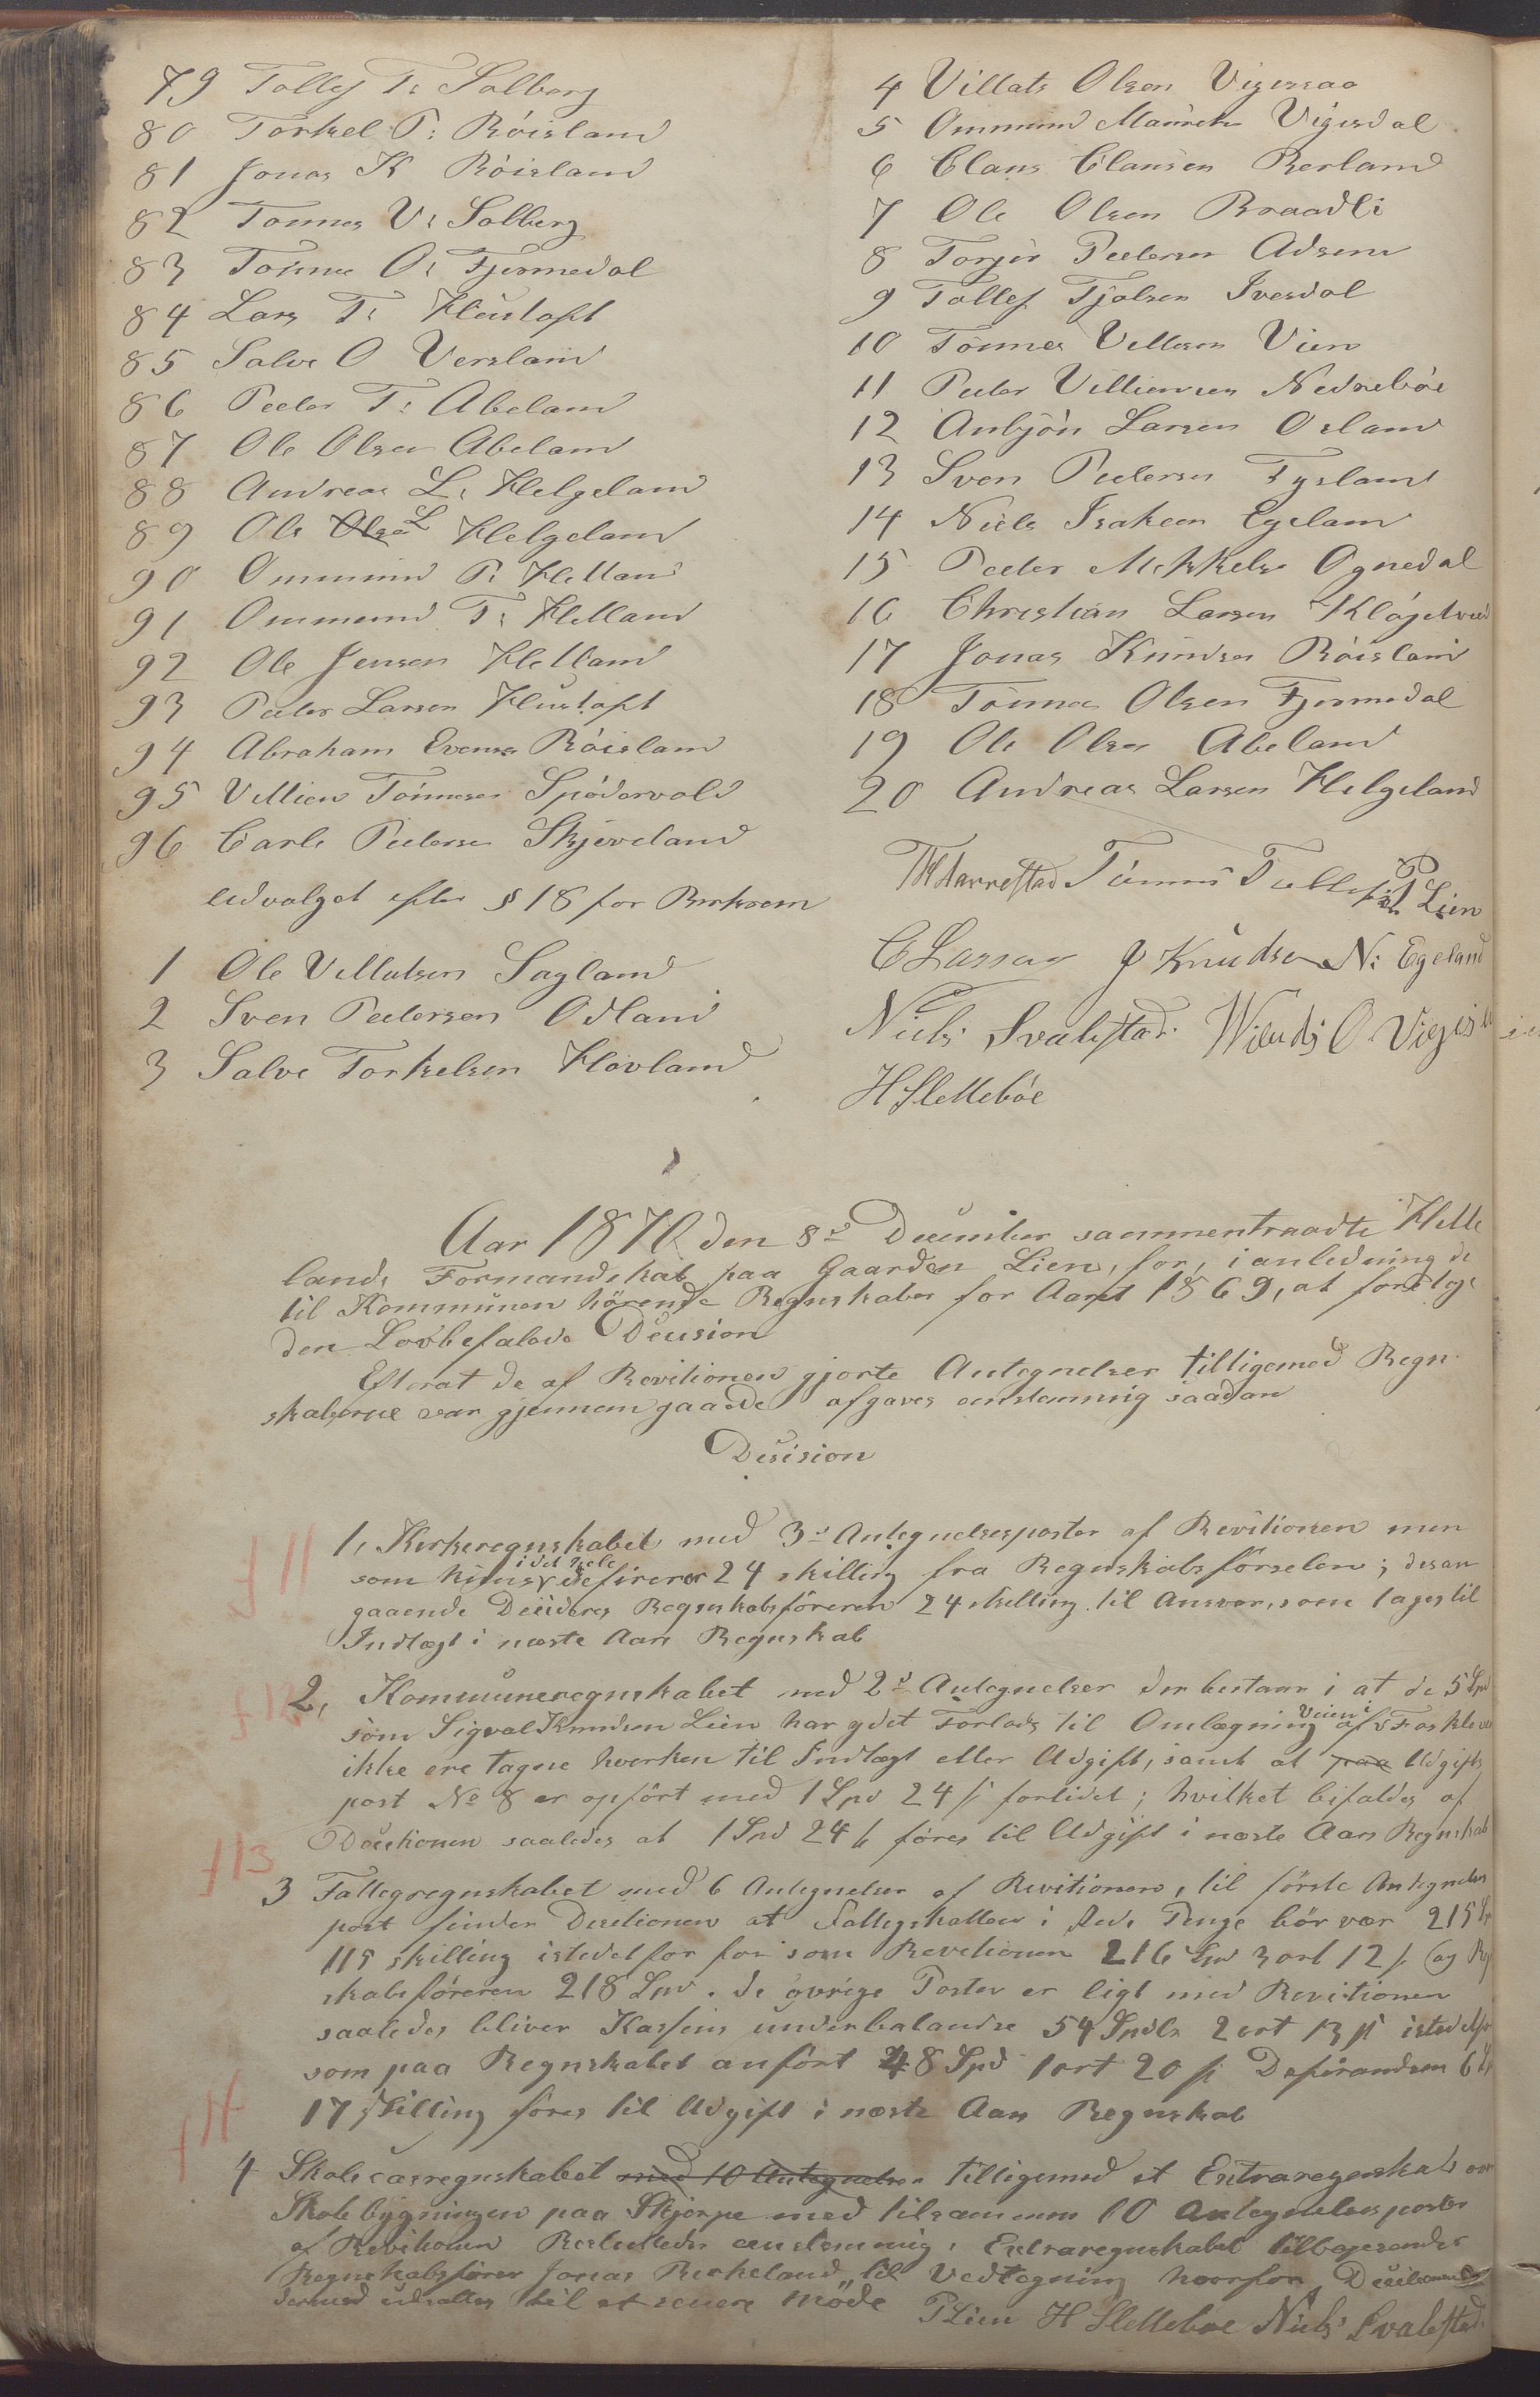 79 Tollef T: Solberg
80 Torkel P: Röisland
81 Jonas K Röisland
82 Tönnes V: Solberg
83 Tönnes O: Fjermedal
84 Lars T:
85 Salve O Versland
86 Peder T: Abeland
87 Ole Olsen Abeland
88 Andreas L: Helgeland
89 Ole L Helgeland
90 Ommund P: Helland
91 Ommund T: Helland
92 Ole Jensen Helland
93 Peder Larsen
94 Abraham Evensen Röisland
95 Villien Tönnesen Spödervold
96 Carle Pedersen Skjeveland
udvalget efter § 18 for Birkrem
1 Ole Villutsen Sagland
2 Sven Pedersen Odland
3 Salve Torkelsen Hovland
4 Villats Olsen Vigessaa
5 Ommund Vigesdal
6 Claus Clausen Berland
7 Ole Olsen Braadli
8 Torjer Pedersen
9 Tollef Ivesdal
10 Tönnes Villesen Vien
11 Peder Villiensen Nedreböe
12 Anbjön Larsen Osland
13 Sven Pedersen Tysland
14 Niels Isaksen Egeland
15 Peder Mikkelsen Ognedal
16 Christian Larsen Klögetved
17 Jonas Knudsen Röisland
18 Tönnes Olsen Fjermedal
19 Ole Olsen Abeland
20 Andreas Larsen Helgeland
TH Harrestad Tönnes Tollefsen P Lien
C Larsen J Knudsen N: Egeland
Niels Svalestad. O Viges
H Sletteböe
Aar 1870 den 8de December sammentraadte Helle
lands Formandskab paa Gaarden Lien, for, i anledning de
til Kommunen hörende Regnskaber for Aaret 1869, at foretage
den Lovbefalede Decision
Efterat de af Revitionen gjorte Antegnelser tilligemed Regn
skaberne var gjennemgaaede afgaves enstemmig saadan
Desision
f 11
1, Kirkeregnskabet med 3de Antegnelsesposter af Revitionen men
som i det hele defirerer 24 skilling fra Regnskabsförselen; desan
gaaende Decideres Regnskabsföreren 24 skilling til Ansvar, som tages til
Indtægt i næste Aars Regnskab
f 12
2, Kommuneregnskabet med 2de Antegnelser der bestaar i at de 5 Spd
som Sigval Knudsen Lien har ydet Forlods til Omlægning af Veien i
ikke ere tagne hverken til Indtægt eller Udgift, samt at paa Udgifts
post No 8 er opfört med 1 Spd 24 s forlidet; hvilket bifaldes af
Decitionen saaledes at 1 Spd 24 s föres til Udgift i næste Aars Regnskab
f 13
3 Fattigregnskabet med 6 Antegnelser af Revitionen, til förste Antegnelses
post finder Decitionen at Fattigskatten i Rede Penge bör vær 215
115 skilling istedetfor som Revitionen 216 Spd 3 ort 12 s og Reg
skabsföreren 218 Spd. de övrige Poster er ligt med Revitionen
saaledes bliver Kassens underbalandse 54 Spdlr 2 ort 13 s istedetfor
som paa Regnskabet anfört 48 Spd 1 ort 20 s Defirandsen 6
17 Skilling föres til Udgift i næste Aars Regnskab
f 14
4 Skolecasregnskabet med 10 Antegnelser tilligemed et Extraregnskab over
Skolebygningen paa Skjerpe med tilsammen 10 Antegnelsesposter
af Revitionen Besluttedes enstemmig, Extraregnskabet tilbagesendes
Regnskabsförer Jonas Birkeland til Vedtegning hvorfor Decitionen
dermed udsattes til et senere Möde P Lien H Slettebøe Niels Svalestad.